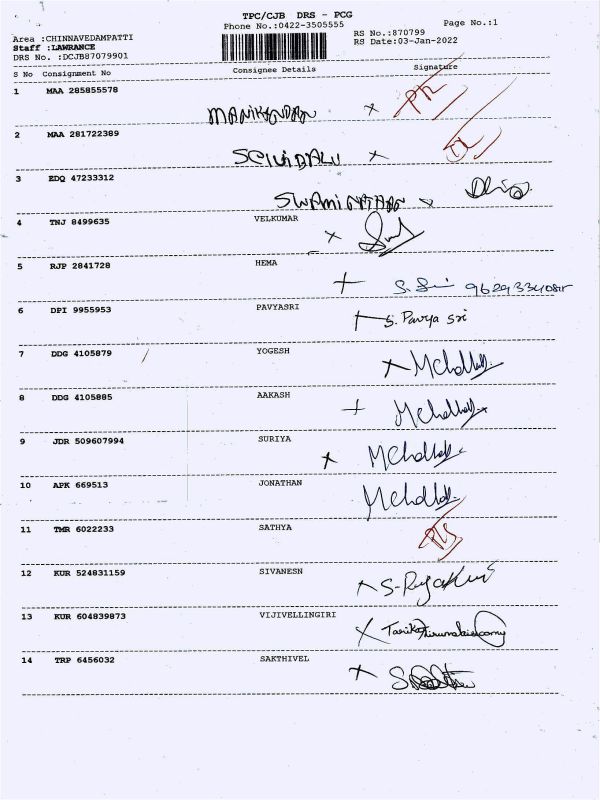 TPC/CJB DRS - PCG
Phone No.:0422-3505555
Page No.:1
Area :CHINNAVEDAMPATTI
RS No.:870799
Staff :LAWRANCE
RS Date:03-Jan-2022
DRS No. :DCJB87079901
S No Consignment No Consignee Details Signature
1 MAA 285855578
MANIKANDAN x
2 MAA 281722389
x
3 EDQ 47233312
SWAMINATHAN x
4 TNJ 8499635 VELKUMAR
x
5 RJP 2841728 HEMA
6 DPI 9955953 PAVYASRI
S. Pavya sri
7 DDG 4105879 YOGESH
8 DDG 4105885 AAKASH
9 JDR 509607994 SURIYA
10 APK 669513 JONATHAN
11 TMR 6022233 SATHYA
12 KUR 524831159 SIVANESN
13 KUR 604839873 VIJIVELLINGIRI
14 TRP 6456032 SAKTHIVEL